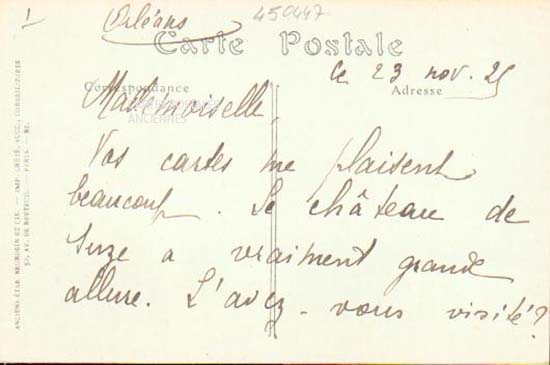 1
Orléans
450447
Carte Postale
ce 23 nov. 25
Correspondance
Adresse
Mademoiselle,
ANCIENNES
Vos cartes me plaisent
beaucoup. Le château de
Suze a vraiment grande
allure. L'avez-vous visité?
ANCIENS ETAB. NEURDEIN ET CIE. — IMP. CRÉTÉ, SUCC., CORBEIL-PARIS
52, AV. DE BRETEUIL. — PARIS. —